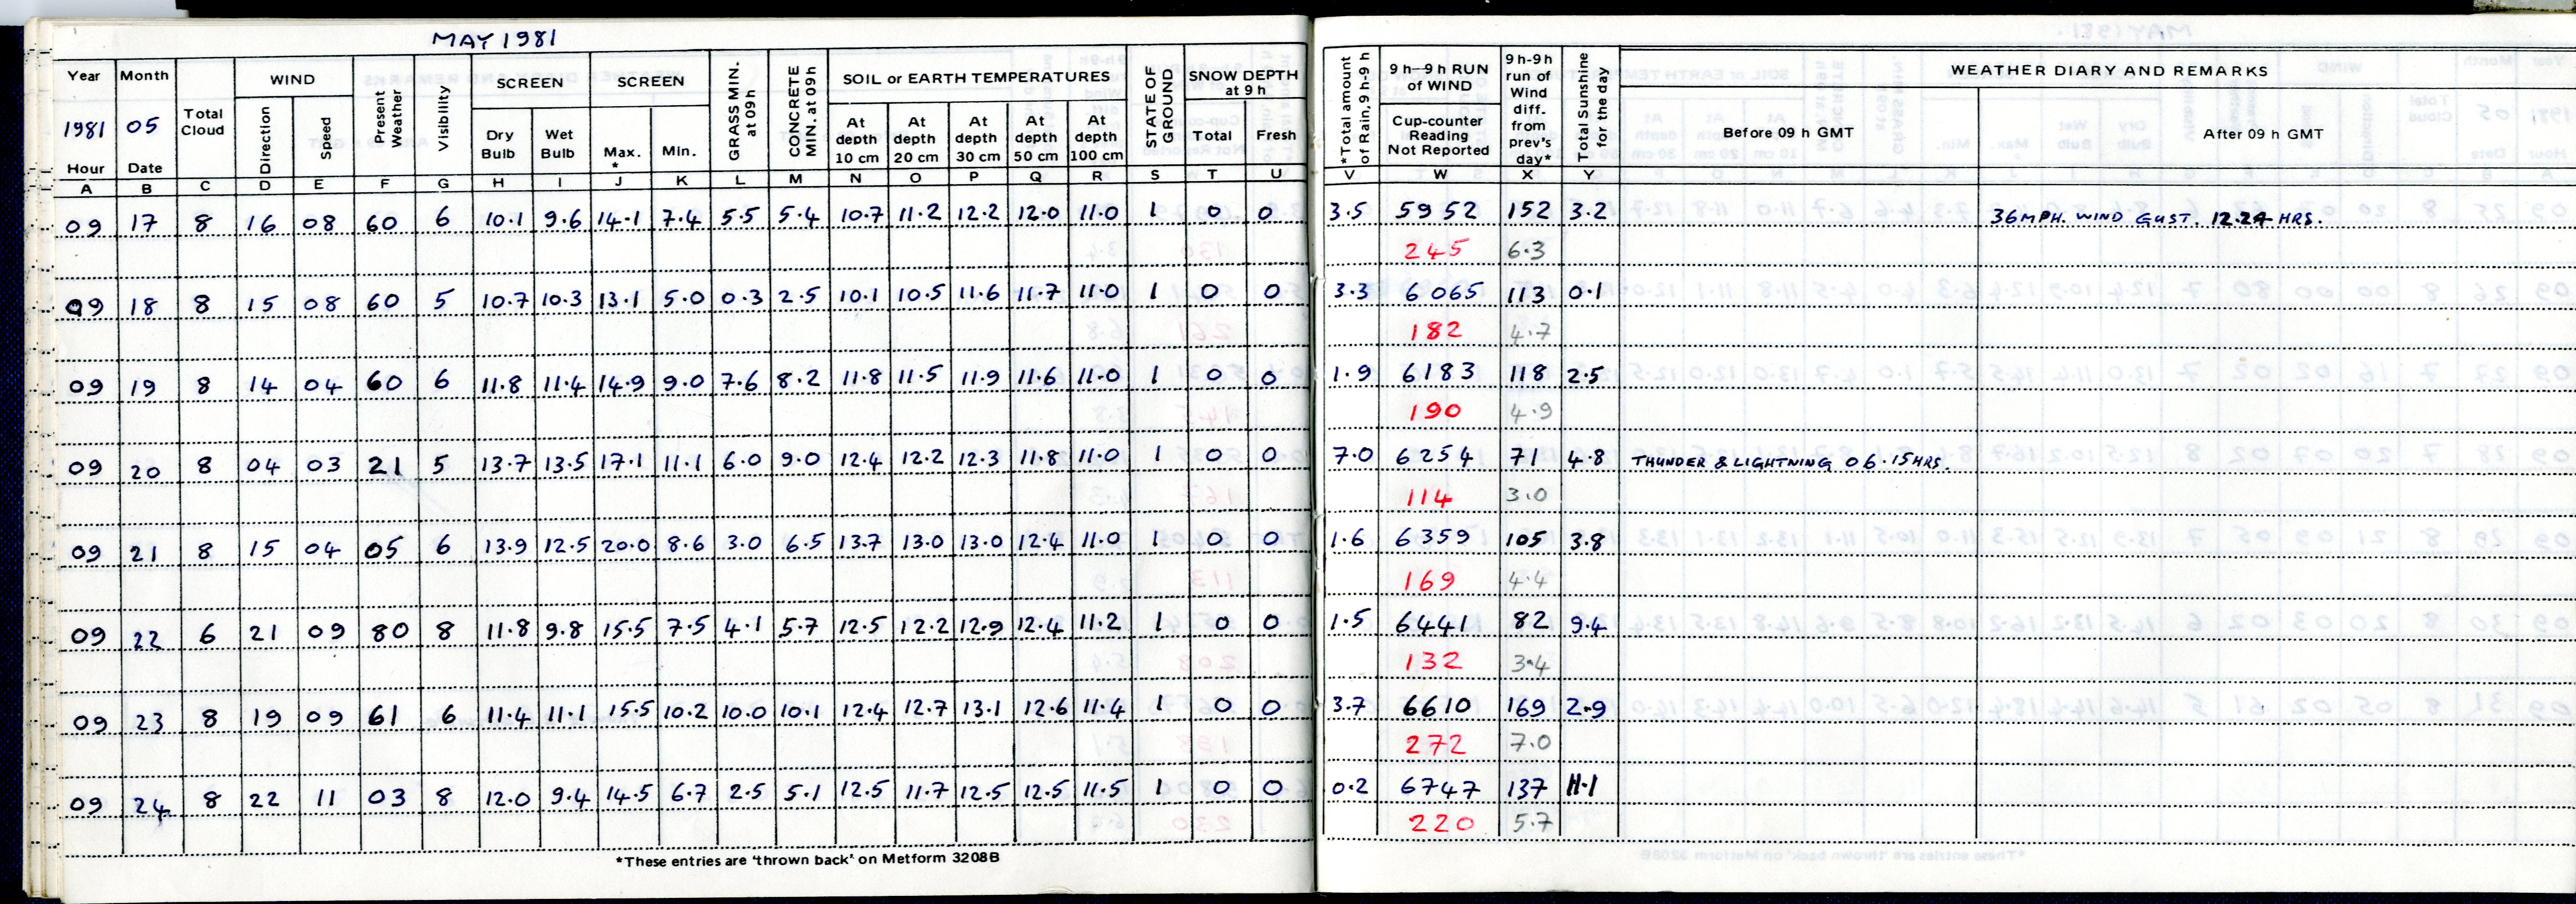 MAY 1981
Year Month Total Cloud WIND Present Weather Visibility SCREEN SCREEN GRASS MIN. at 09h CONCRETE MIN. at 09h SOIL or EARTH TEMPERATURES STATE OF GROUND SNOW DEPTH at 9 h *Total amount of Rain, 9h-9h 9h—9h RUN of WIND 9h-9h run of Wind diff. from prev's day* Total Sunshine for the day WEATHER DIARY AND REMARKS
1981 05 Direction Speed Dry Bulb Wet Bulb Max. * Min. At depth 10 cm At depth 20 cm At depth 30 cm At depth 50 cm At depth 100 cm Total Fresh Cup-counter Reading Not Reported Before 09 h GMT After 09 h GMT
Hour Date
A B C D E F G H I J K L M N O P Q R S T U V W X Y
09 17 8 16 08 60 6 10.1 9.6 14.1 7.4 5.5 5.4 10.7 11.2 12.2 12.0 11.0 1 0 0 3.5 5952 152 3.2 36MPH. WIND GUST. 12.24 HRS.
245 6.3
09 18 8 15 08 60 5 10.7 10.3 13.1 5.0 0.3 2.5 10.1 10.5 11.6 11.7 11.0 1 0 0 3.3 6065 113 0.1
182 4.7
09 19 8 14 04 60 6 11.8 11.4 14.9 9.0 7.6 8.2 11.8 11.5 11.9 11.6 11.0 1 0 0 1.9 6183 118 2.5
190 4.9
09 20 8 04 03 21 5 13.7 13.5 17.1 11.1 6.0 9.0 12.4 12.2 12.3 11.8 11.0 1 0 0 7.0 6254 71 4.8 THUNDER & LIGHTNING 06.15HRS.
114 3.0
09 21 8 15 04 05 6 13.9 12.5 20.0 8.6 3.0 6.5 13.7 13.0 13.0 12.4 11.0 1 0 0 1.6 6359 105 3.8
169 4.4
09 22 6 21 09 80 8 11.8 9.8 15.5 7.5 4.1 5.7 12.5 12.2 12.9 12.4 11.2 1 0 0 1.5 6441 82 9.4
132 3.4
09 23 8 19 09 61 6 11.4 11.1 15.5 10.2 10.0 10.1 12.4 12.7 13.1 12.6 11.4 1 0 0 3.7 6610 169 2.9
272 7.0
09 24 8 22 11 03 8 12.0 9.4 14.5 6.7 2.5 5.1 12.5 11.7 12.5 12.5 11.5 1 0 0 0.2 6747 137 11.1
220 5.7
*These entries are 'thrown back' on Metform 3208B